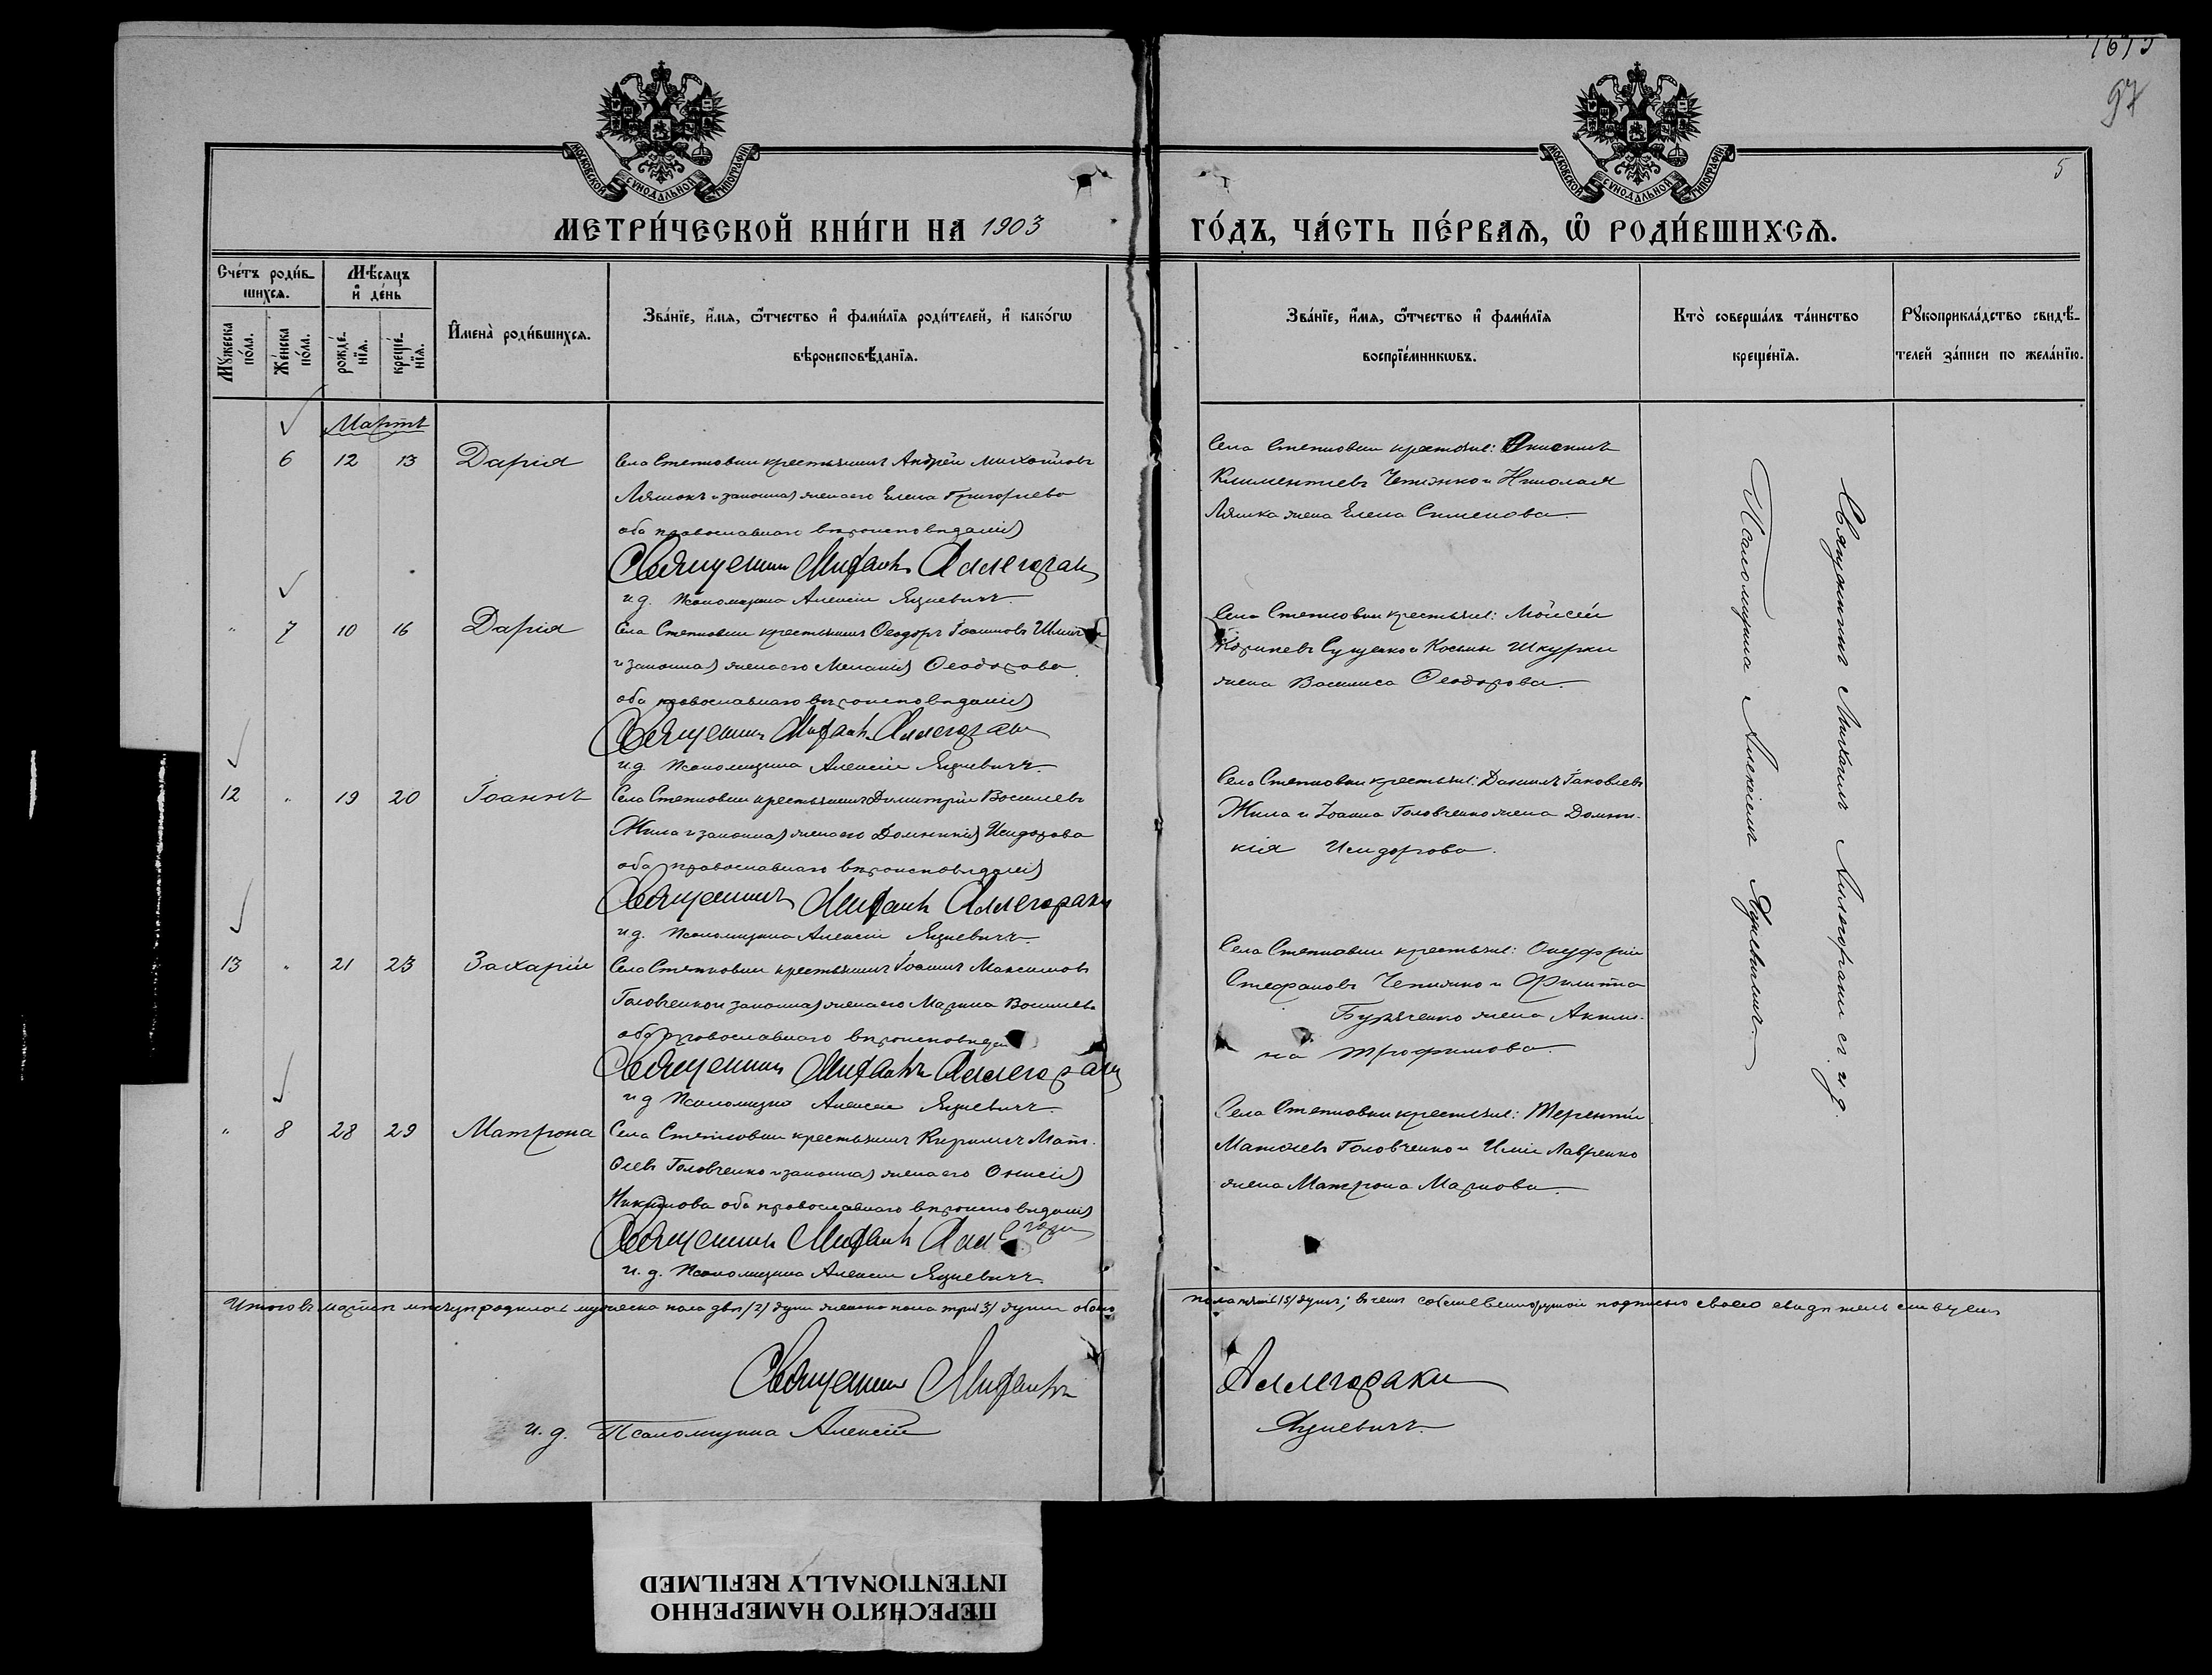 1615
97
5
МОСКОВСКОЙ СѴНОДАЛЬНОЙ ТИПОГРАФІИ
МОСКОВСКОЙ СѴНОДАЛЬНОЙ ТИПОГРАФІИ
МЕТРИ́ЧЕСКОЙ КНИ́ГИ НА 1903 ГО́ДЪ, ЧА́СТЬ ПЕ́РВАѦ, Ѽ РОДИ́ВШИХСѦ.
Сче́тъ роди́в-
шихсѧ.
Мꙋжеска
по́ла.
Же́нска
по́ла.
Мѣ́сѧцъ
и҆ де́нь
рожде́-
нїѧ.
креще́-
нїѧ.
И҆мена̀ роди́вшихсѧ.
Зва́нїе, и҆́мѧ, ѻ҆́тчество и҆ фами́лїѧ роди́телей, и҆ како́гѡ
вѣроисповѣ́данїѧ.
Зва́нїе, и҆́мѧ, ѻ҆́тчество и҆ фами́лїѧ
воспрїе́мникѡвъ.
Кто̀ соверша́лъ та́инство
креще́нїѧ.
Рꙋкоприкла́дство свидѣ́-
телей за́писи по жела́нїю.
Мартъ
6 12 13 Дарія
Села Степковки крестьянинъ Андрей Михайловъ
Ляшокъ и законная жена его Елена Григорьева
оба православнаго вѣроисповѣданія
Священникъ Михаилъ Аллегораки
и.д. Псаломщика Алексій Яцкевичъ.
Села Степковки крестьяне: Онисимъ
Климентіевъ Чепижко и Николая
Ляшка жена Елена Симеонова.
" 7 10 16 Дарія
Села Степковки крестьянинъ Ѳеодоръ Іоанновъ
и законная жена его Меланія Ѳеодорова
оба православнаго вѣроисповѣданія
Священникъ Михаилъ Аллегораки
и.д. Псаломщика Алексій Яцкевичъ.
Села Степковки крестьяне: Моисей
Сущенко и Космы Шкурки
жена Василиса Ѳеодорова.
12 " 19 20 Іоаннъ
Села Степковки крестьянинъ Димитрій Василіевъ
Жила и законная жена его Домникія Исидорова
оба православнаго вѣроисповѣданія
Священникъ Михаилъ Аллегораки
и.д. Псаломщика Алексій Яцкевичъ.
Села Степковки крестьяне: Даниилъ Іаковлевъ
Жила и Іоанна Головченко жена Домни-
кія Исидорова.
13 " 21 23 Захарій
Села Степковки крестьянинъ Іоаннъ Максимовъ
Головченко и законная жена его Марина Василіева
оба православнаго вѣроисповѣдан
Священникъ Михаилъ Аллегораки
и.д. Псаломщика Алексій Яцкевичъ.
Села Степковки крестьяне: Онуфрій
Стефановъ Чепижко и Филиппа
Буряченко жена Акили-
на Трофимова.
" 8 28 29 Матрона
Села Степковки крестьянинъ Кириллъ Мат-
ѳіевъ Головченко и законная жена его Онисія
оба православнаго вѣроисповѣданія
Священникъ Михаилъ Аллегораки
и.д. Псаломщика Алексій Яцкевичъ.
Села Степковки крестьяне: Терентій
Матѳіевъ Головченко и Иліи Лавренко
жена Матрона Маркова.
Священникъ Михаилъ Аллегораки съ и.д.
Псаломщика Алексіемъ Яцкевичемъ
Итого въ мартѣ мѣсяцѣ родилось мужеска пола два /2/ души женска пола три /3/ души обоего
пола пять /5/ душъ; въ чемъ собственноручною подписью своею свидѣтельствуемъ
Священникъ Михаилъ Аллегораки
и.д. Псаломщика Алексій Яцкевичъ.
ПЕРЕСНЯТО НАМЕРЕННО
INTENTIONALLY REFILMED